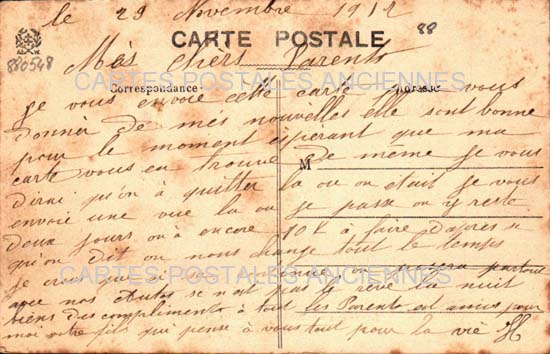 le 29 Novembre 1912
88
CARTE POSTALE
880548
Més chèrs Parents
Correspondance Adresse
CARTES POSTALES ANCIENNES
je vous envoie cette carte pour vous
donner de més nouvelles elle sont bonne
pour le moment éspérant que ma
carte vous en trouve de même je vous
M
dirai qu'on à quitter la ou on était je vous
envoie une vue la ou je passe on y reste
deux jours ou à encore 10 K à faire d'après se
qu'on dit on nous change tout le temps
je crois que si on
CARTES POSTALES ANCIENNES
avec nos Autos se n'ait pas le rêve la nuit
biens des compliments à tous les Parents et amis pour
moi votre fils qui pense à vous tout pour la vie